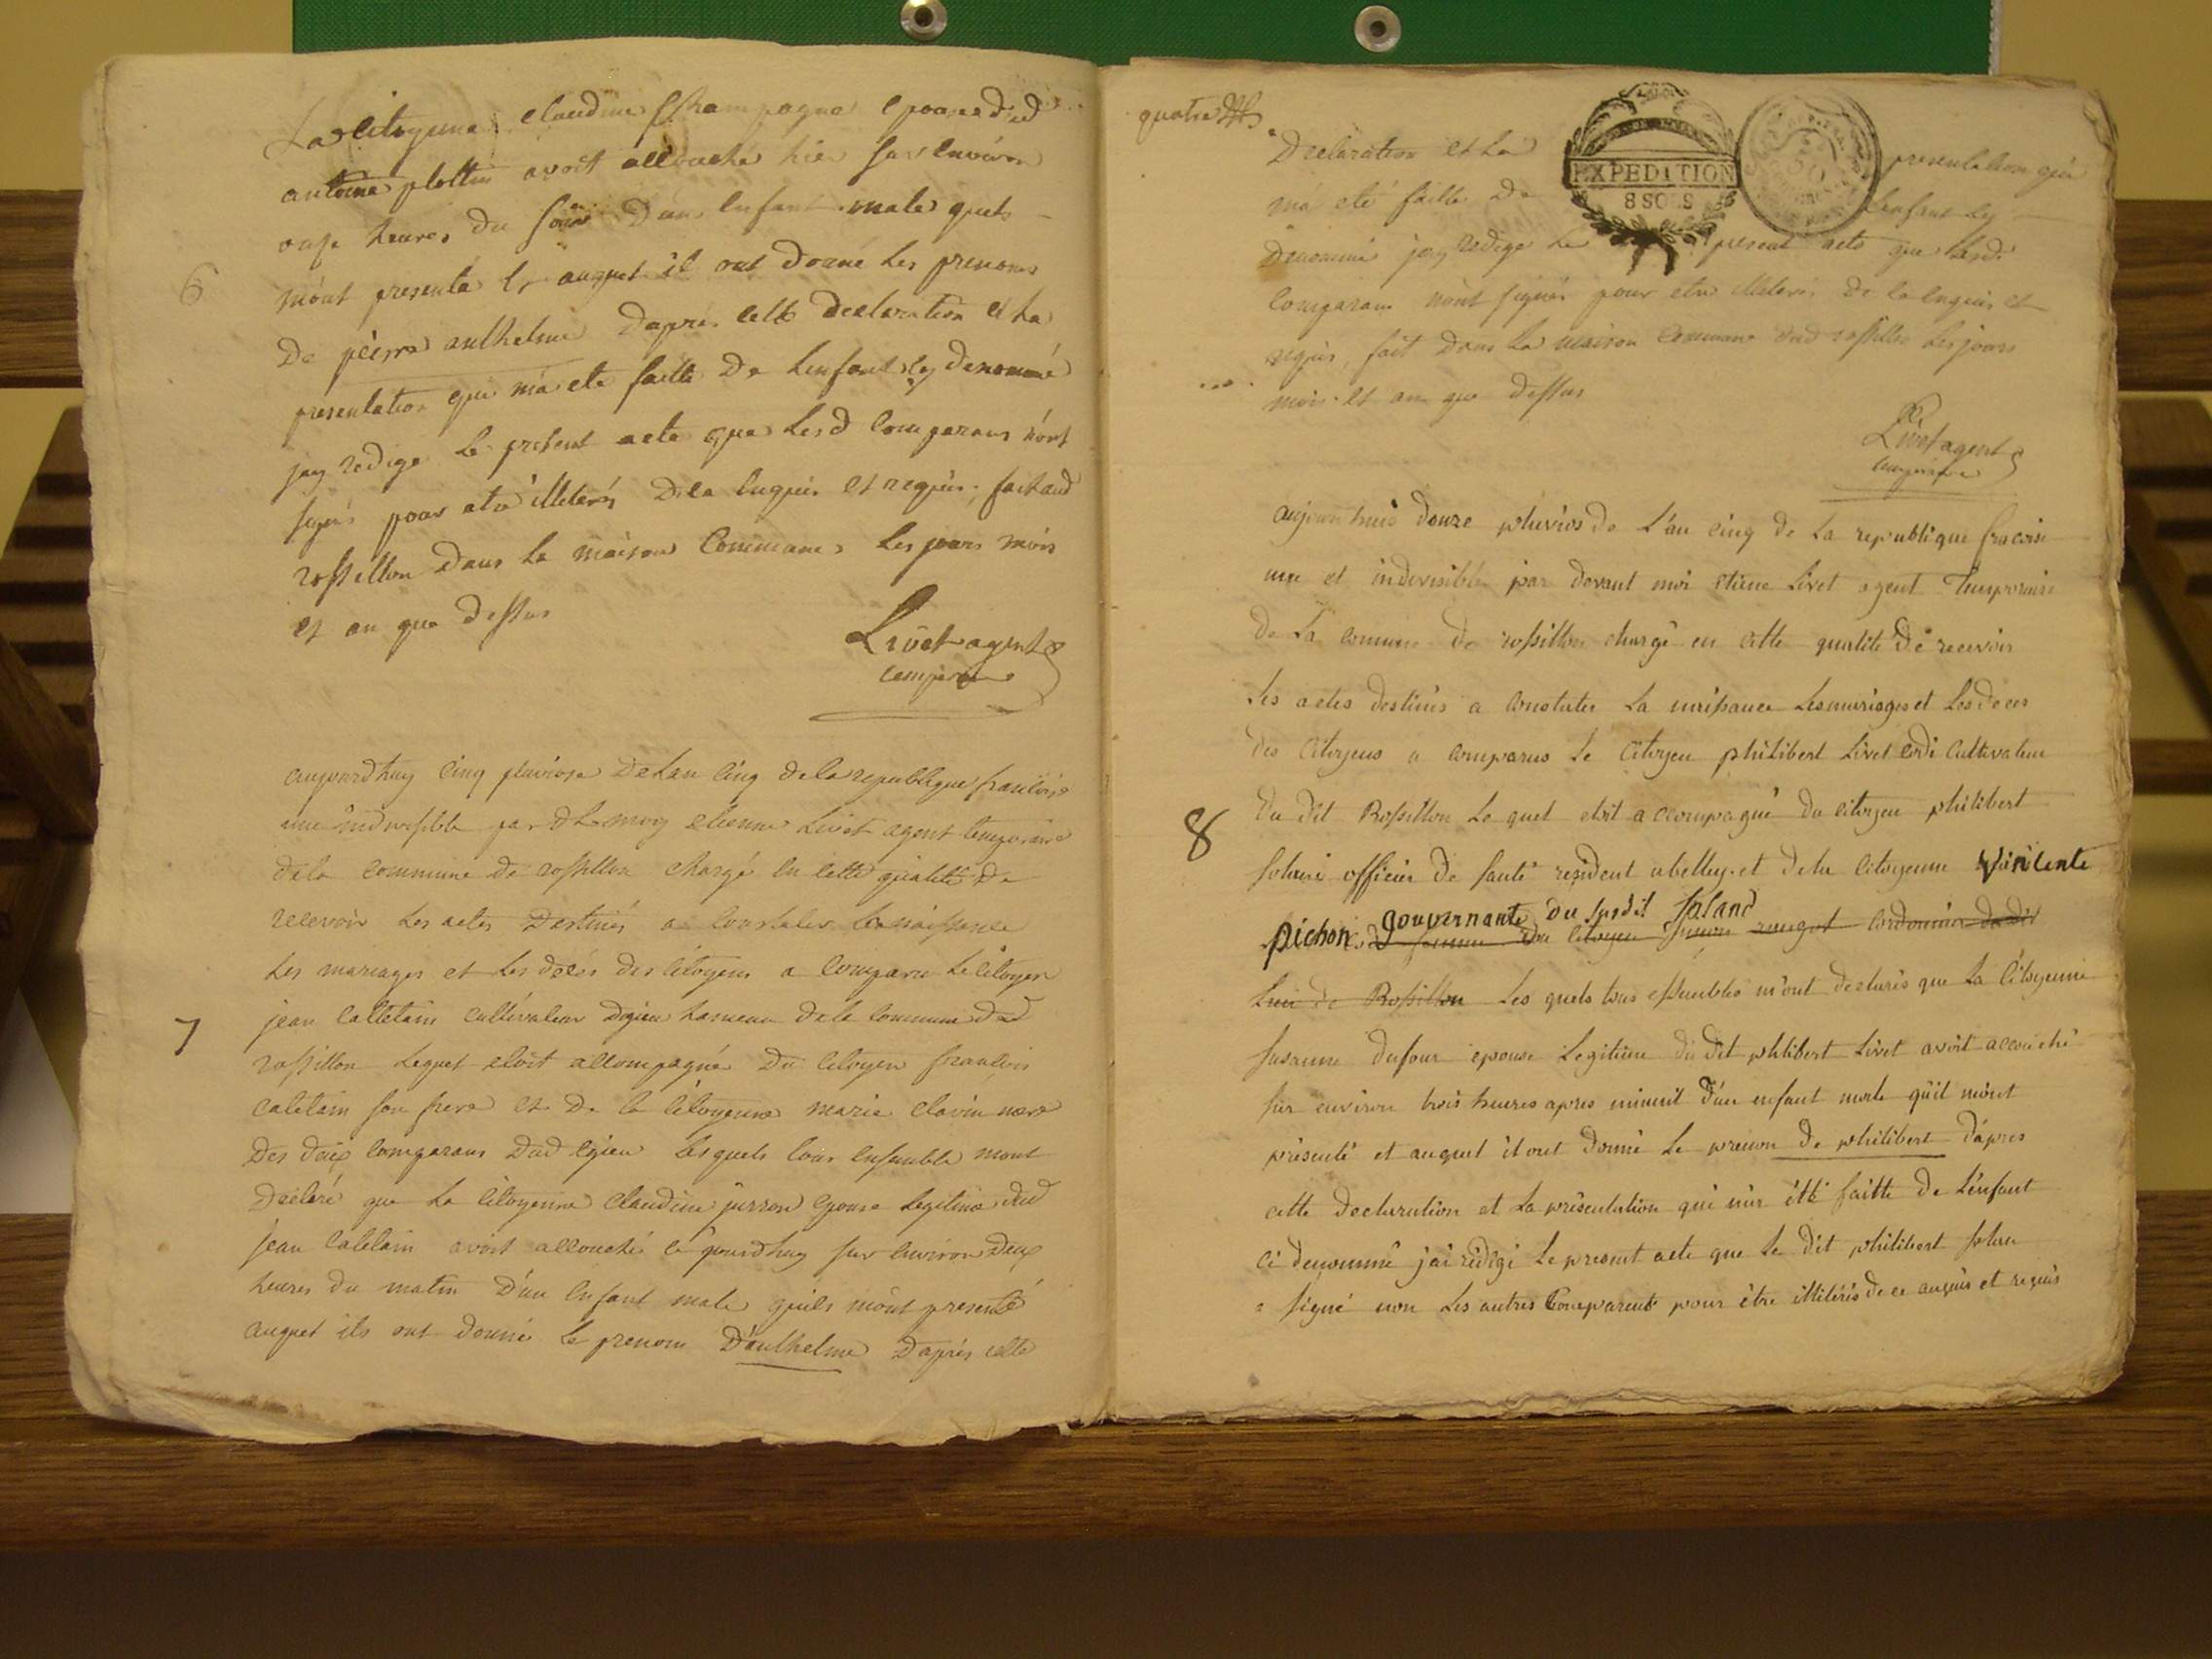 La Citoyenne Claudine Champagne epouse dud
antoine plottin avoit accouché hier sur environ
onze heures du soir D'un enfant male quels
m'ont presenté et auquel il ont donné les prenoms
6
De pierre anthelme D'apres cette Declaration et La
presentation qui m'a eté faitte De L'enfant cy denommé
jay redigé Le present acte que Lesd Comparans n'ont
signés pour etre illeterés De ce enquis et requis, fait aud
rossillon Dans La maison Commune Les jours mois
et an que Dessus
Livet agent
temporaire
aujourdhuy cinq pluviose De Lan cinq de la republique francoise
une indivisible par dt moy etienne Livet agent temporaire
de la commune de rossillon chargé en cette qualité De
recevoir Les actes Destinés a constater La naissance
Les mariages et Les décés des citoyens a comparu Le citoyen
jean Calletain cultivateur Dgieu hameau de la commune Dud
7
rossillon Lequel etoit accompagné Du citoyen francois
caletain son frere et De la citoyenne marie clavin mere
Des deux comparans Dud Egieu Lesquels tous ensemble mont
Declaré que La citoyenne Claudine jurron epouse Legitime dud
jean Caletain avoit accouché ce jourdhuy sur environ Deux
heures du matin D'un enfant male quils m'ont presenté
auquel ils ont donné Le prenom D'anthelme D'aprés cette
quatre
Declaration et La presentation qui
EXPEDITION
8 SOLS
50
m'a eté faitte De L'enfant cy
Denommé jay redigé Le present acte que Lesd
Comparans n'ont signés pour etre illeterés De ce enquis et
requis, fait Dans La maison Commune dud rossillon Les jours
mois et an que Dessus
Livet agent
temporaire
aujourd'huis douze pluvios de L'an cinq de La republique fracoise
une et indivisible par devant moi etiene Livet agent Temporaire
de La comune de rossillon chargé en cette qualité de recevoir
Les actes destinés a constater La naissance Les mariages et Les deces
des Citoyens a comparus Le Citoyen philibert Livet cultivateur
8
du dit Rossillon Le quel etoit accompagné du citoyen philibert
officier de santé resident a belley et de la citoyenne Vincente
gouvernante du susdit
pichon femme du Citoyen cordonnier du dit
Lieu de Rossillon Les quels tous essembles m'ont declarés que La Citoyenne
susanne dufour epouse Legitime du dit philibert Livet avoit accouché
sur environ trois heures apres minuit d'un enfant male qu'il m'ont
présenté et auquel il ont donné Le prenom de philibert d'apres
cette declaration et La présentation qui m'a été faitte de L'enfant
ci denommé j'ai rédigé Le present acte que Le dit philibert
a signé non Les autres Comparents pour être illitérés de ce enquis et requis